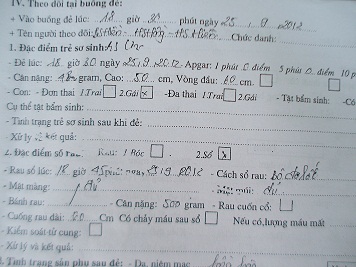 IV. Theo dõi tại buồng đẻ:
+ Vào buồng đẻ lúc: 18 giờ 30 phút ngày 25 . 9 . 2012
+ Tên người theo dõi: Chức danh:
1. Đặc điểm trẻ sơ sinh:
- Đẻ lúc: 18 giờ 30 ngày 25.9.2012. Apgar: 1 phút 0 điểm 5 phút 0 điểm 10 p
- Cân nặng: gram, Cao: 50 cm, Vòng đầu: cm
- Con: - Đơn thai 1.Trai 2.Gái x -Đa thai 1.Trai 2.Gái - Tật bẩm sinh: -Có
Cụ thể tật bẩm sinh:
- Tình trạng trẻ sơ sinh sau khi đẻ:
- Xử lý kết quả:
2. Đặc điểm sổ rau: Rau: 1 Bóc 2.Sổ x
- Rau sổ lúc: 18 giờ 45 2012 - Cách sổ rau:
- Mặt màng: đủ - Mặt múi: đủ
- Bánh rau: - Cân nặng: 500 gram - Rau cuốn cổ:
- Cuống rau dài: 50 Cm Có chảy máu sau sổ Nếu có,lượng máu mất
- Kiểm soát tử cung:
- Xử lý và kết quả:
3. Tình trạng sản phụ sau đẻ: - Da, niêm mạc